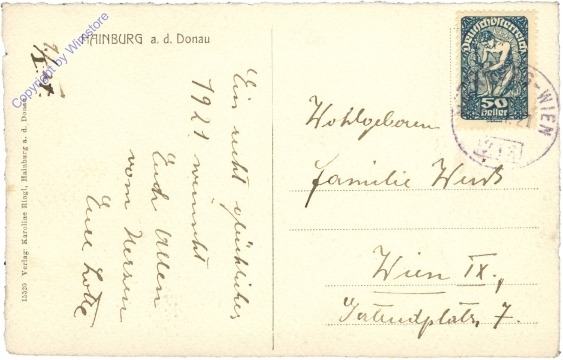 HAINBURG a. d. Donau
Copyright by Winstore
Ein recht glückliches
1921 wünscht
Euch Allen
vom Herzen
Eure Lotte
15520 Verlag: Karoline Ringl, Hainburg a. d. Donau
Deutschösterreich
50
Heller
-WIEN
21
Wohlgeboren
Familie
Wien IX.,
7.